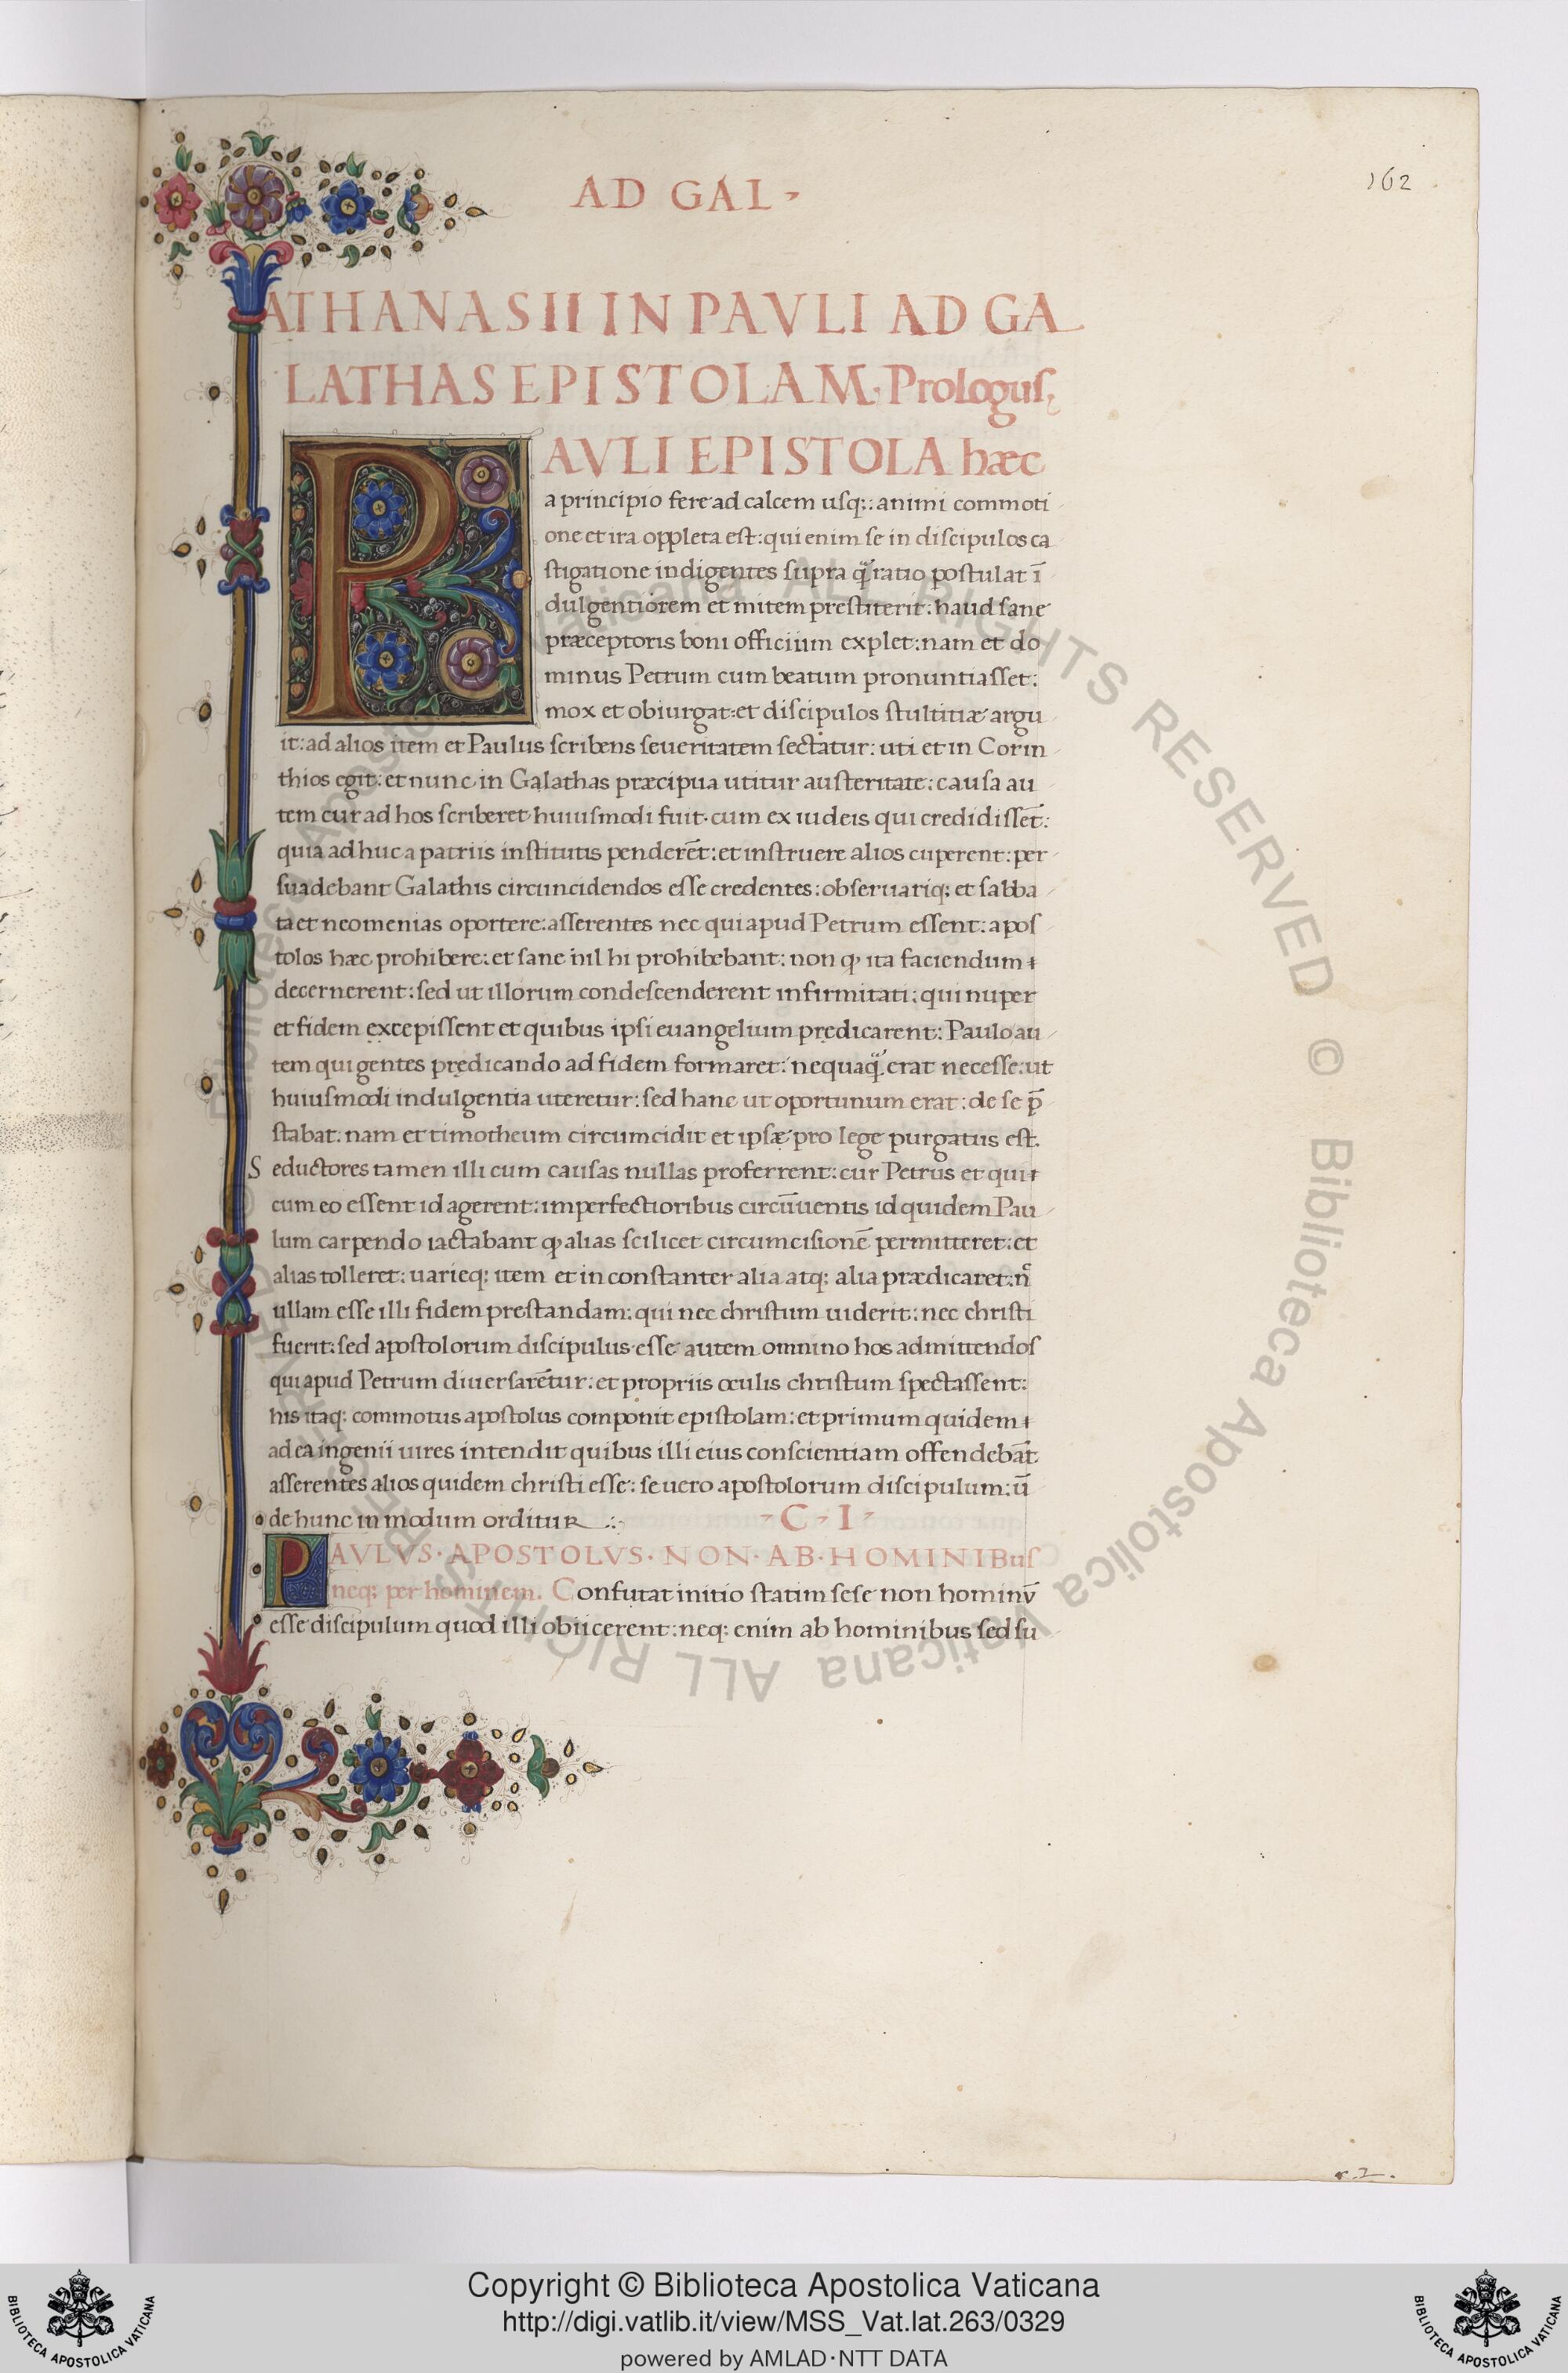 AD GAL
162
ATHANASII IN PAVLI AD GA
LATHAS EPISTOLAM. Prologus,
PAVLI EPISTOLA hæc
a principio fere ad calcem usq;: animi commoti
one et ira oppleta est: qui enim se in discipulos ca
stigatione indigentes supra q̃ ratio postulat ĩ
dulgentiorem et mitem prestiterit: haud sane
præceptoris boni officium explet: nam et do
minus Petrum cum beatum pronuntiasset:
mox et obiurgat: et discipulos stultitiæ argu
it: ad alios item et Paulus scribens seueritatem sectatur: uti et in Corin
thios egit: et nunc in Galathas præcipua utitur austeritate: causa au
tem cur ad hos scriberet huiusmodi fuit. cum ex iudeis qui credidissēt:
quia adhuc a patriis institutis penderēt: et instruere alios cuperent: per
suadebant Galathis circuncidendos esse credentes: obseruariq; et sabba
ta et neomenias oportere: asserentes nec qui apud Petrum essent: apos
tolos hæc prohibere: et sane nil hi prohibebant: non ꝙ ita faciendum
decernerent: sed ut illorum condescenderent infirmitati: qui nuper
et fidem excepissent et quibus ipsi euangelium prędicarent: Paulo au
tem qui gentes prędicando ad fidem formaret: nequaq̃ erat necesse: ut
huiusmodi indulgentia uteretur: sed hanc ut oportunum erat: de se p̄
stabat: nam et timotheum circumcidit et ipsæ pro lege purgatus est.
Seductores tamen illi cum causas nullas proferrent: cur Petrus et qui
cum eo essent id agerent: imperfectioribus circūuentis id quidem Pau
lum carpendo iactabant ꝙ alias scilicet circumcisionē permitteret: et
alias tolleret: uarieq; item et inconstanter alia atq; alia prædicaret: n̄
ullam esse illi fidem prestandam: qui nec christum uiderit: nec christi
fuerit: sed apostolorum discipulus. esse autem omnino hos admittendos
qui apud Petrum diuersarētur: et propriis oculis christum spectassent:
his itaq; commotus apostolus componit epistolam: et primum quidem
ad ea ingenii uires intendit quibus illi eius conscientiam offendebāt
asserentes alios quidem christi esse: se uero apostolorum discipulum: ū
de hunc in modum orditur .:.
C I
PAVLVS. APOSTOLVS. NON. AB. HOMINIBus
neq; per hominem. Confutat initio statim sese non hominū
esse discipulum quod illi obiicerent: neq; enim ab hominibus sed su
r.2.
Copyright © Biblioteca Apostolica Vaticana
http://digi.vatlib.it/view/MSS_Vat.lat.263/0329
powered by AMLAD·NTT DATA
BIBLIOTECA APOSTOLICA VATICANA
BIBLIOTECA APOSTOLICA VATICANA
© Biblioteca Apostolica Vaticana ALL RIGHTS RESERVED © Biblioteca Apostolica Vaticana ALL RIGHTS RESERVED